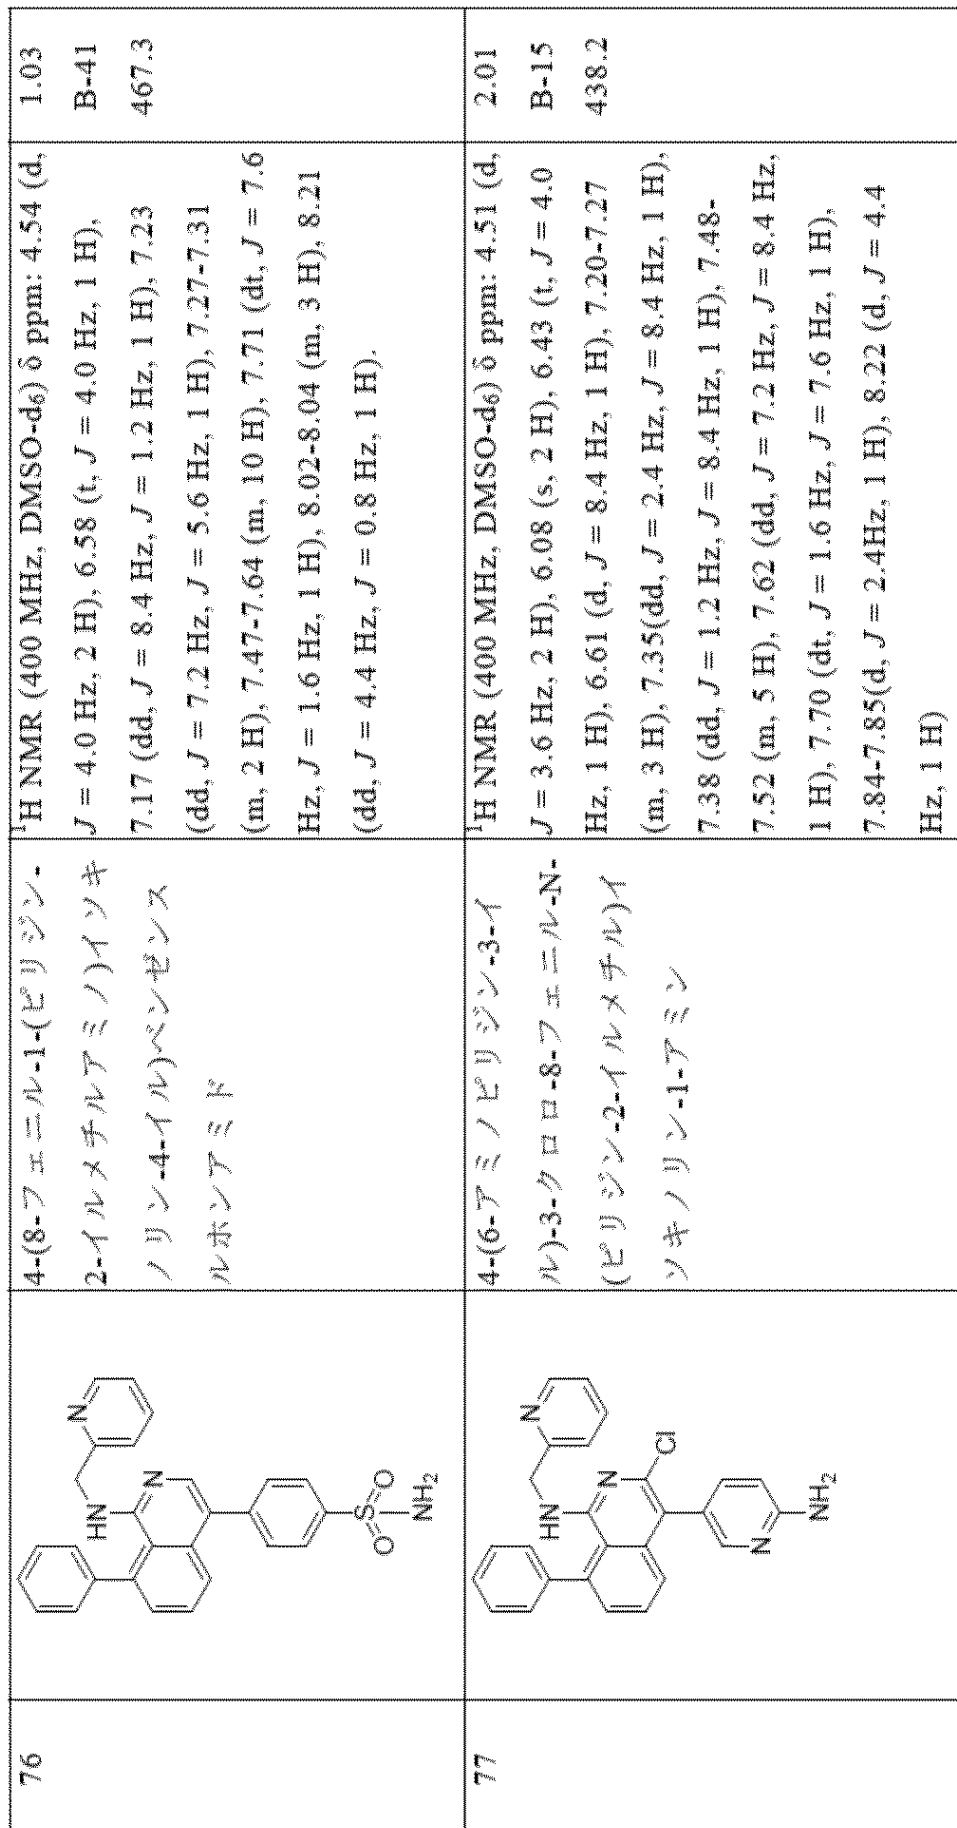 76
HN
N
N
O
S
O
NH2
4-(8-フェニル-1-(ピリジン-
2-イルメチルアミノ)イソキ
ノリン-4-イル)ベンゼンス
ルホンアミド
1H NMR (400 MHz, DMSO-d6) δ ppm: 4.54 (d,
J = 4.0 Hz, 2 H), 6.58 (t, J = 4.0 Hz, 1 H),
7.17 (dd, J = 8.4 Hz, J = 1.2 Hz, 1 H), 7.23
(dd, J = 7.2 Hz, J = 5.6 Hz, 1 H), 7.27-7.31
(m, 2 H), 7.47-7.64 (m, 10 H), 7.71 (dt, J = 7.6
Hz, J = 1.6 Hz, 1 H), 8.02-8.04 (m, 3 H), 8.21
(dd, J = 4.4 Hz, J = 0.8 Hz, 1 H).
1.03
B-41
467.3
77
HN
N
N
Cl
N
NH2
4-(6-アミノピリジン-3-イ
ル)-3-クロロ-8-フェニル-N-
(ピリジン-2-イルメチル)イ
ソキノリン-1-アミン
1H NMR (400 MHz, DMSO-d6) δ ppm: 4.51 (d,
J = 3.6 Hz, 2 H), 6.08 (s, 2 H), 6.43 (t, J = 4.0
Hz, 1 H), 6.61 (d, J = 8.4 Hz, 1 H), 7.20-7.27
(m, 3 H), 7.35(dd, J = 2.4 Hz, J = 8.4 Hz, 1 H),
7.38 (dd, J = 1.2 Hz, J = 8.4 Hz, 1 H), 7.48-
7.52 (m, 5 H), 7.62 (dd, J = 7.2 Hz, J = 8.4 Hz,
1 H), 7.70 (dt, J = 1.6 Hz, J = 7.6 Hz, 1 H),
7.84-7.85(d, J = 2.4Hz, 1 H), 8.22 (d, J = 4.4
Hz, 1 H)
2.01
B-15
438.2